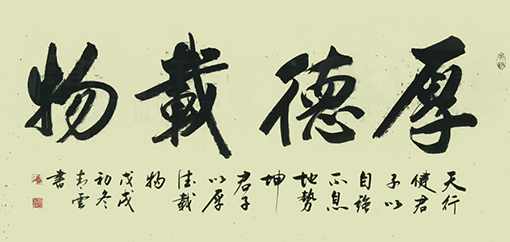 厚德載物
天行
健君
子以
自強
不息
地勢
坤
君子
以厚
德載
物
戊戌
初冬
青雲
書